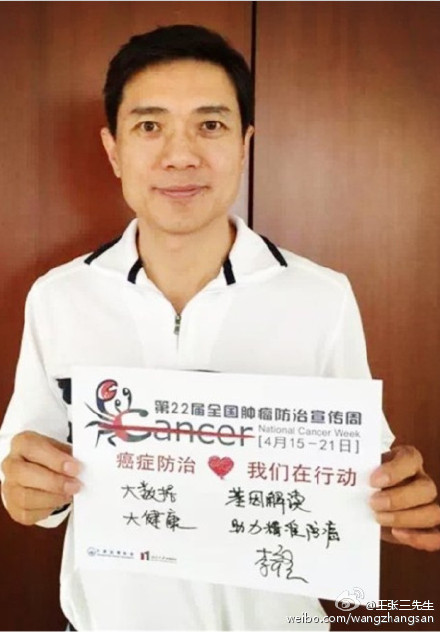 第22届全国肿瘤防治宣传周
Cancer
National Cancer Week
[4月15-21日]
癌症防治 我们在行动
大数据 基因解读
大健康 助力精准防癌
@王张三先生
weibo.com/wangzhangsan